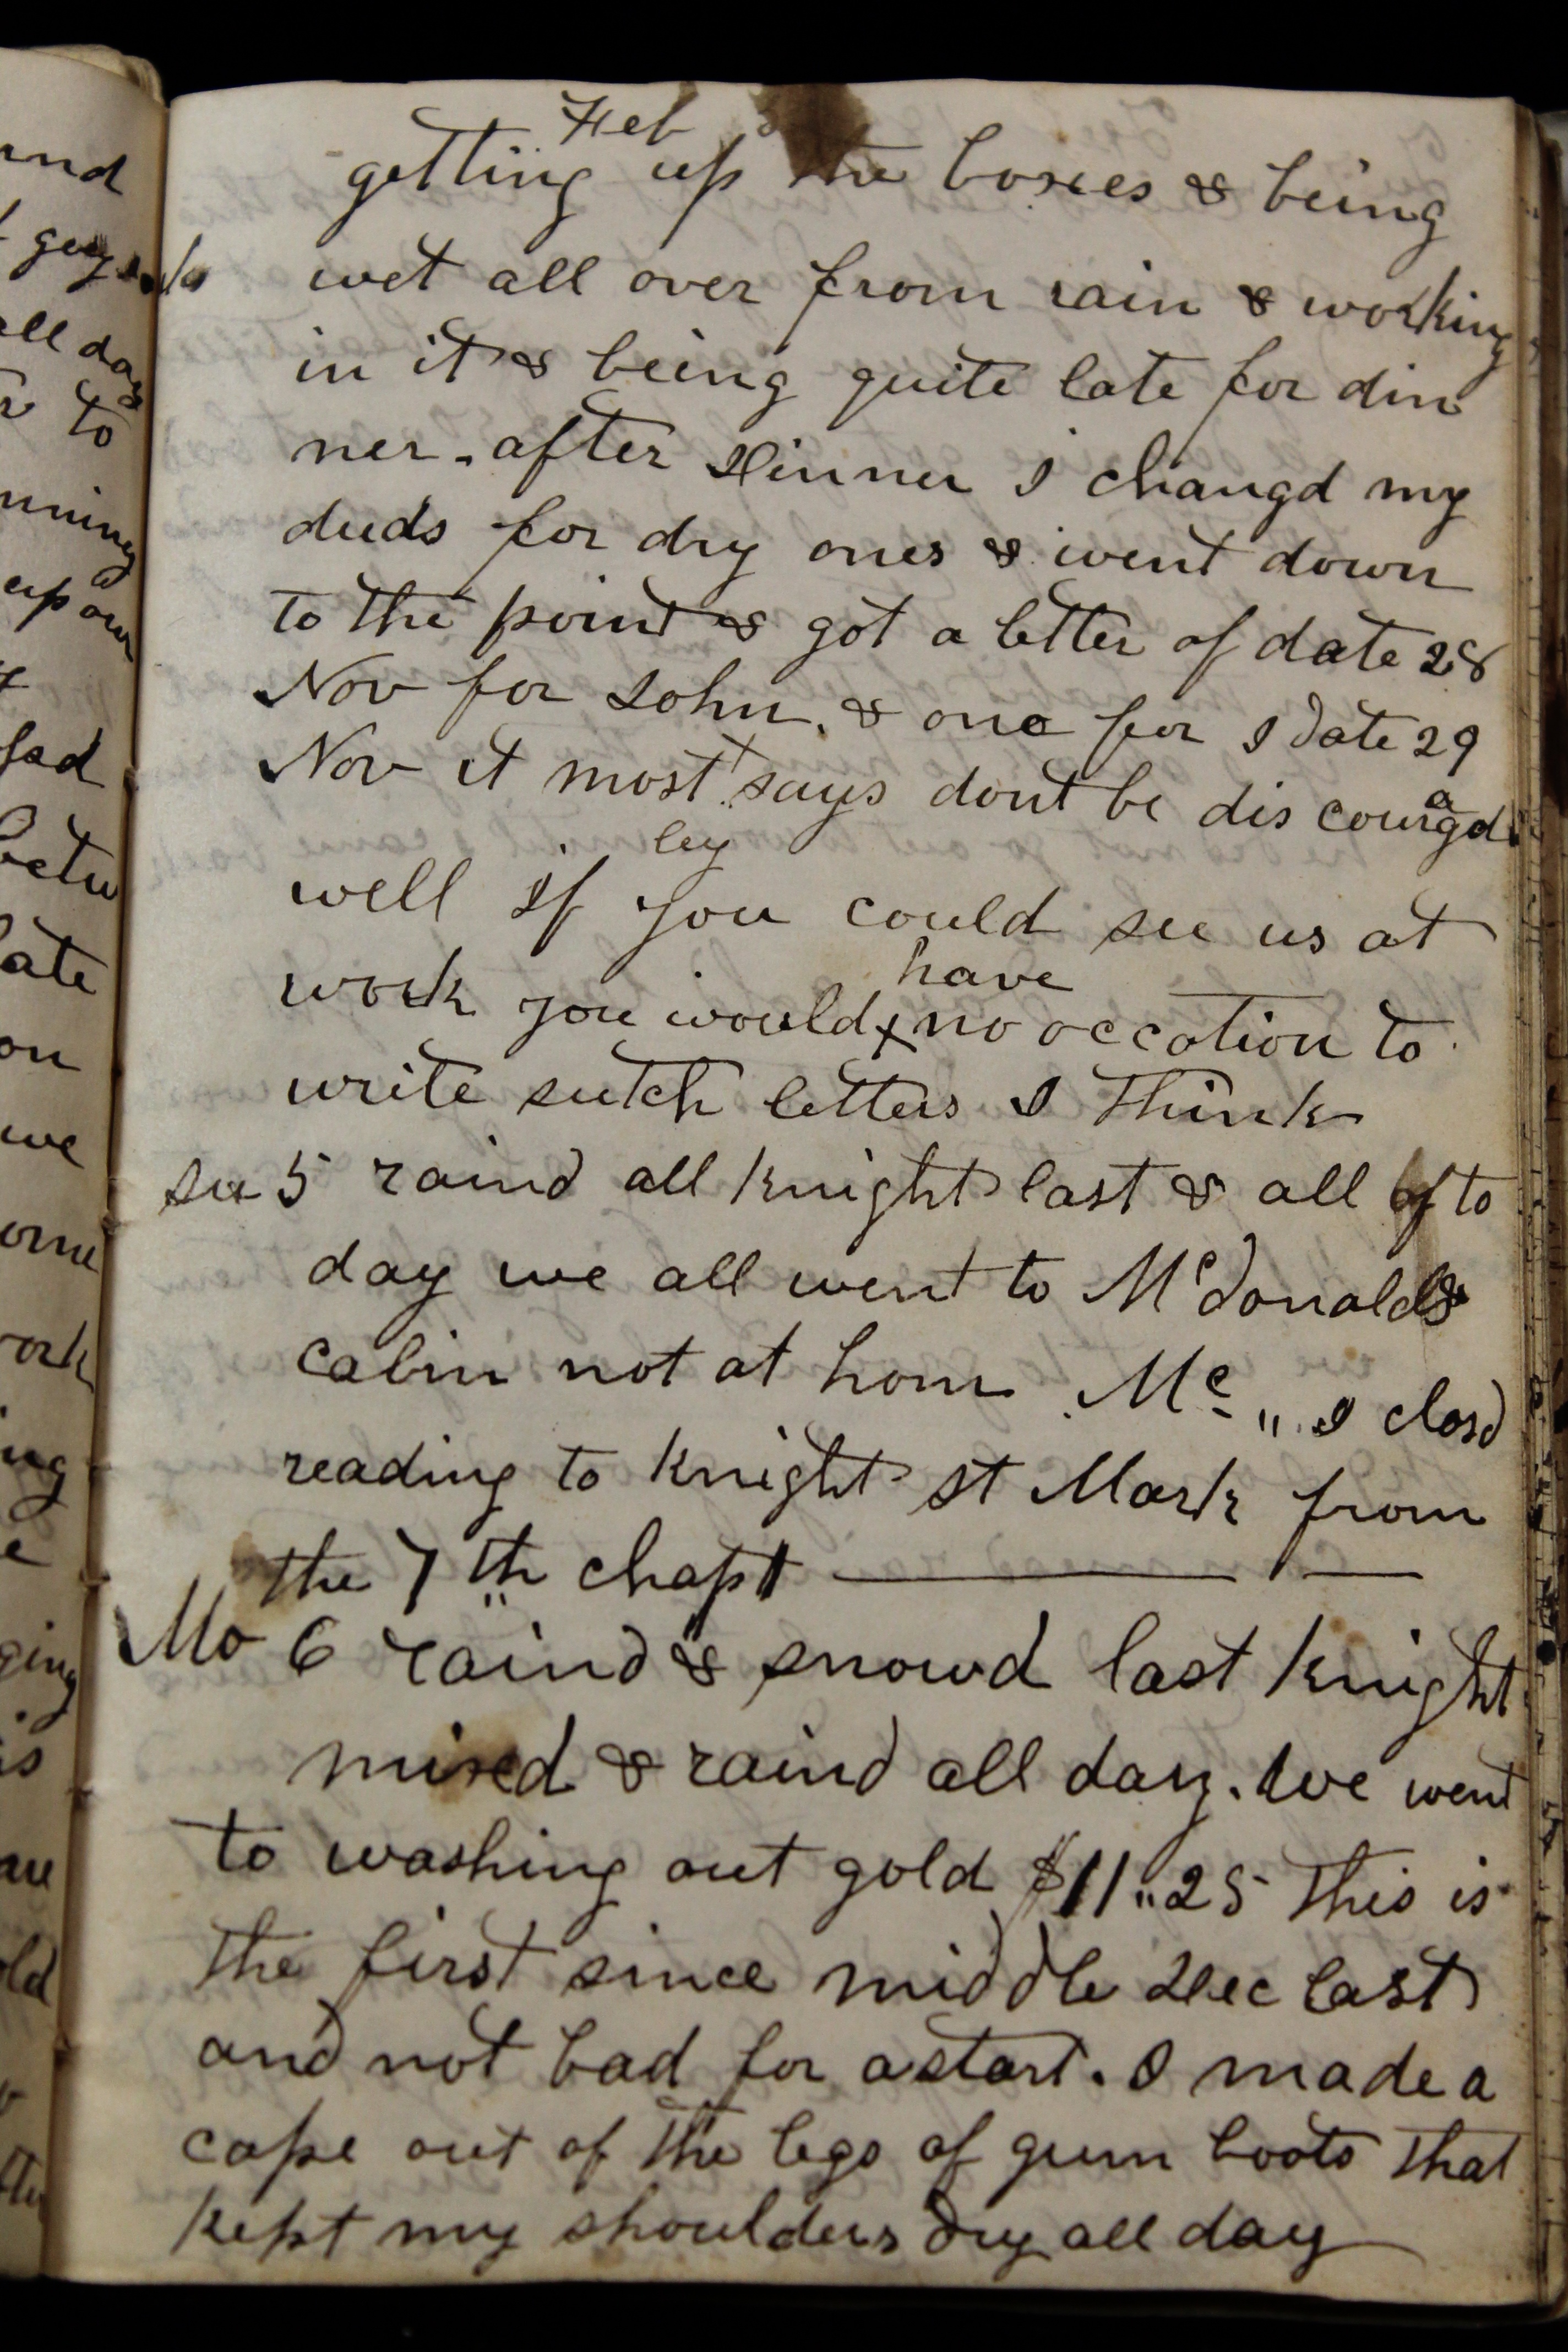 Feb
getting up the boxes & being
wet all over from rain & working
in it & being quite late for din
ner. after Dinner I changd my
duds for dry ones & went down
to the point & got a letter of date 28
Nov for John. & one for I date 29
Nov it most says dont be dis couragd
ley
well if you could see us at
have
work you would x no occation to
write sutch letters I think
su 5 raind all knight last & all of to
day we all went to Mcdonalds
cabin not at hom Mc " I closd
reading to knight st Mark from
the 7th chapt
Mo 6 raind & snowd last knight
mixed & raind all day. we went
to washing out gold $11"25 this is
the first since middle Dec last
and not bad for a start. I made a
cape out of the legs of gum boots that
kept my shoulders dry all day
and
all day
to
ate
on
we
ork
ing
ging
is
old